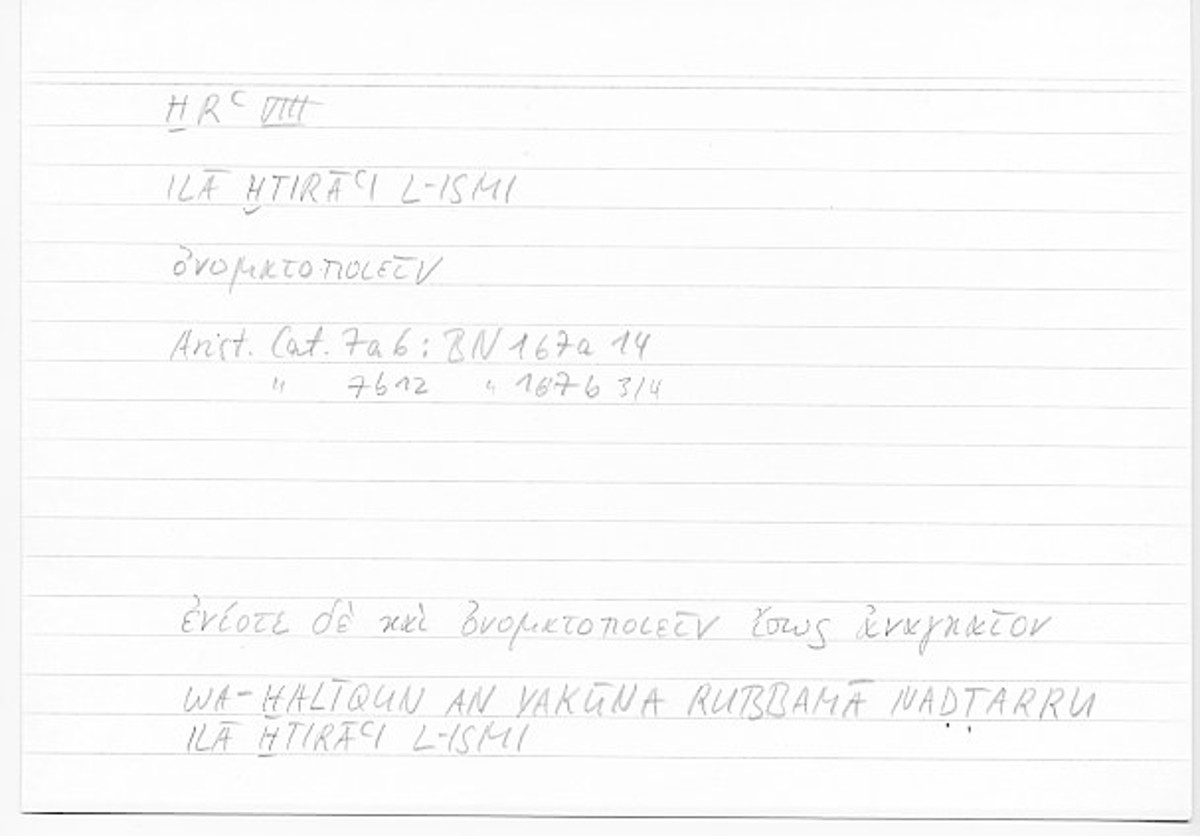 ḪRʿ VIII
ILĀ ḪTIRĀʿI L-ISMI
ὀνοματοποιεῖν
Arist. Cat. 7a6: BN 167a 14
" 7b12 " 167b 3/4
ἐνίοτε δὲ καὶ ὀνοματοποιεῖν ἴσως ἀναγκαῖον
WA-ḪALĪQUN AN YAKŪNA RUBBAMĀ NAḌṬARRU
ILĀ ḪTIRĀʿI L-ISMI